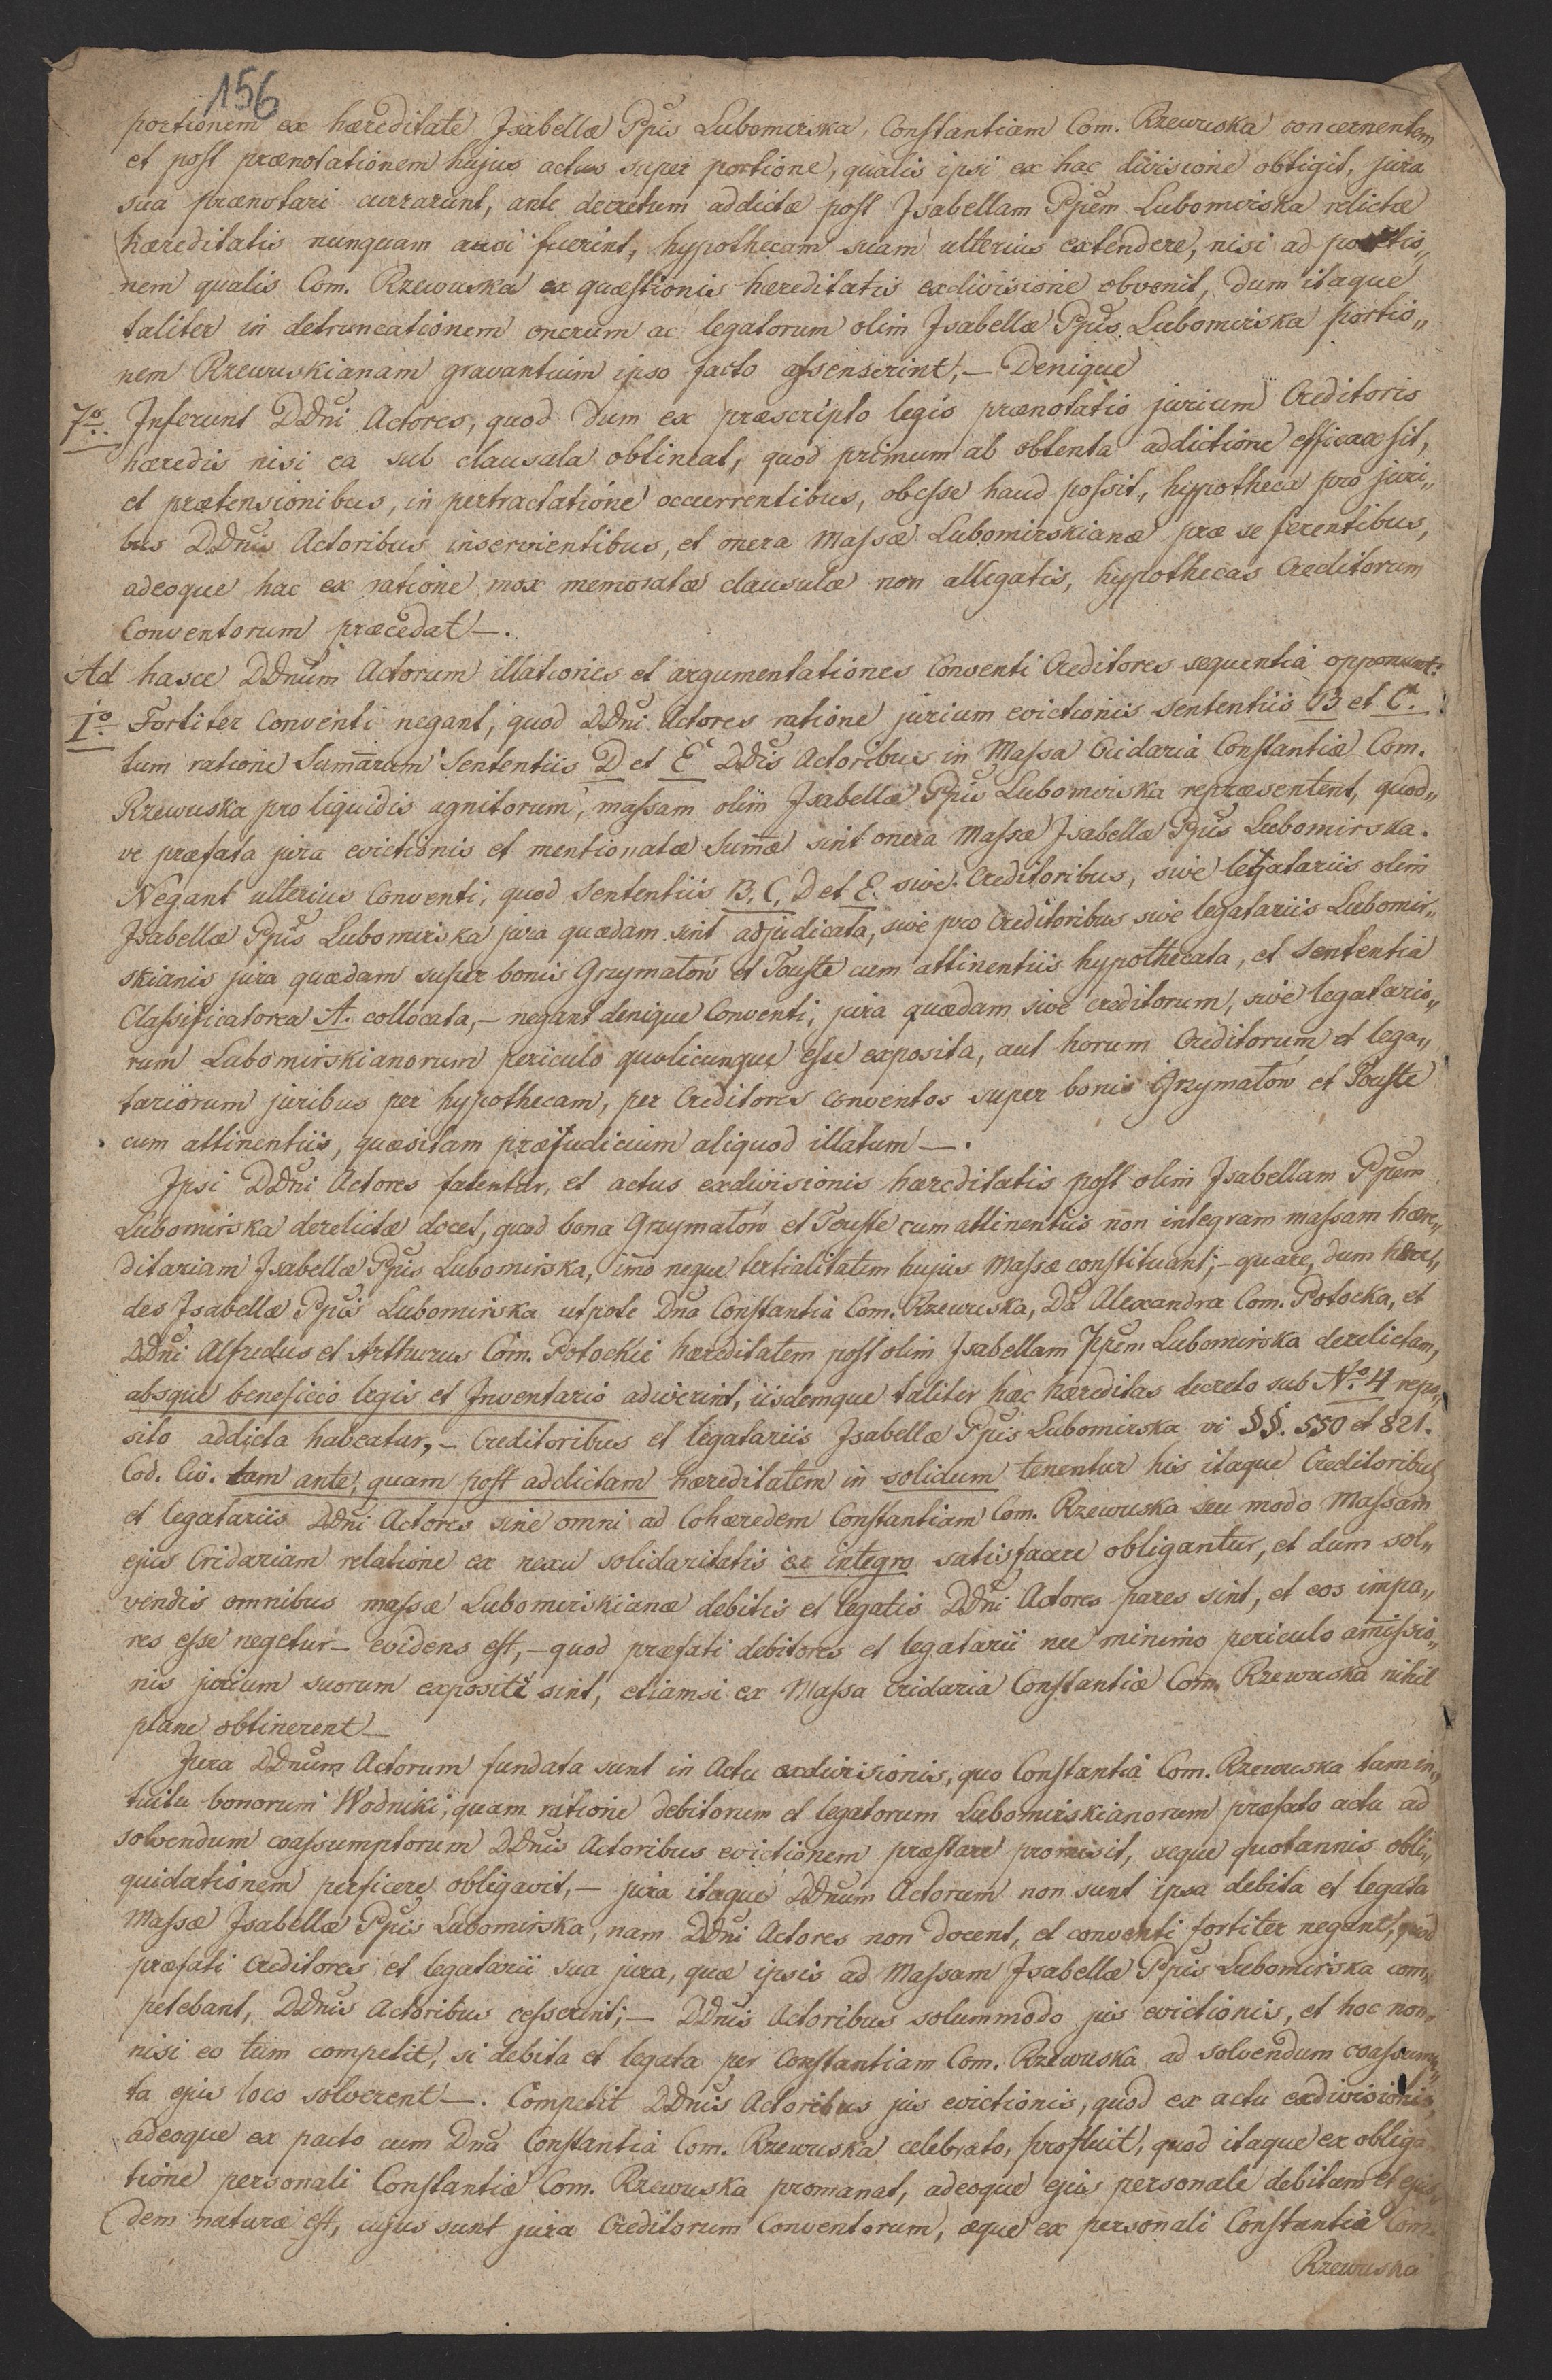 156
portionem ex hæreditate Isabellæ Ppis Lubomirska, Constantiam Com. Rzewuska concernentem
et post prænotationem hujus actus super portione, qualis ipsi ex hac divisione obtigit, jura
sua prænotari curarunt, ante decretum addictæ post Isabellam Ppem Lubomirska relictæ
hæreditatis nunquam ausi fuerint, hypothecam suam ulterius extendere, nisi ad portio„
nem qualis Com. Rzewuska ex quæstionis hæreditatis exdivisione obvenit, dum itaque
taliter in detruncationem onerum ac legatorum olim Isabellæ Ppis Lubomirska portio„
nem Rzewuskianam gravantium ipso facto assenserint, — Denique
7o. Inferunt DDni Actores, quod dum ex præscripto legis prænotatio jurium Creditoris
hæredis nisi ea sub clausula obtineat, quod primum ab obtenta addictione efficax sit,
et prætensionibus, in pertractatione occurrentibus, obesse haud possit, hypotheca pro juri„
bus DDnis Actoribus inservientibus, et onera Massæ Lubomirskianæ præ se ferentibus,
adeoque hac ex ratione mox memoratæ clausulæ non allegatis, hypothecas Creditorum
Conventorum præcedat —.
Ad hasce DDnum Actorum illationes et argumentationes Conventi Creditores sequentia opponunt:
1o. Fortiter Conventi negant, quod DDni Actores ratione jurium evictionis sententiis B et C.
tum ratione Summarum Sententiis D et E DDis Actoribus in Massa Cridaria Constantiæ Com.
Rzewuska pro liquidis agnitorum, massam olim Isabellæ Ppis Lubomirska repræsentent, quod„
ve præfata jura evictionis et mentionatæ Summæ sint onera Massæ Isabellæ Ppis Lubomirska.
Negant ulterius Conventi, quod Sententiis B, C, D et E. sive Creditoribus, sive legatariis olim
Isabellæ Ppis Lubomirska jura quædam sint adjudicata, sive pro Creditoribus sive legatariis Lubomir„
skianis jura quædam super bonis Grzymałow et Touste cum attinentiis hypothecata, et Sententia
Classificatorea A. collocata, — negant denique Conventi, jura quædam sive creditorum, sive legatario„
rum Lubomirskianorum periculo qualicunque esse exposita, aut horum Creditorum et lega„
tariorum juribus per hypothecam, per Creditores conventos super bonis Grzymałow et Touste
cum attinentiis, quæsitam præjudicium aliquod illatum —.
Ipsi DDni Actores fatentur, et actus exdivisionis hæreditatis post olim Isabellam Ppem
Lubomirska derelictæ docet, quod bona Grzymałow et Touste cum attinentiis non integram massam hære„
ditariam Isabellæ Ppis Lubomirska, imo neque tertialitatem hujus Massæ constituant; — quare, dum hære„
des Isabellæ Ppis Lubomirska utpote Dna Constantia Com. Rzewuska, Da Alexandra Com. Potocka, et
DDni Alfredus et Arthurus Com. Potockie hæreditatem post olim Isabellam Ppem Lubomirska derelictam,
absque beneficio legis et Inventario adiverint, iisdemque taliter hæc hæreditas decreto sub No. 4 repo„
sito addicta habeatur, — Creditoribus et legatariis Isabellæ Ppis Lubomirska vi §§. 550 et 821.
Cod. Civ. tam ante, quam post addictam hæreditatem in solidum tenentur his itaque Creditoribus
et legatariis DDni Actores sine omni ad Cohæredem Constantiam Com. Rzewuska seu modo Massam
ejus Cridariam relatione ex nexu solidaritatis ex integro satisfacere obligantur, et dum sol„
vendis omnibus massæ Lubomirskianæ debitis et legatis DDni Actores pares sint, et eos impa„
res esse negetur — evidens est, — quod præfati debitores et legatarii nec minimo periculo amissio„
nis jurium suorum expositi sint, etiamsi ex Massa cridaria Constantiæ Com. Rzewuska nihil
plane obtinerent —
Jura DDnum Actorum fundata sunt in Actu exdivisionis, quo Constantia Com. Rzewuska tam in„
tuitu bonorum Wodniki, quam ratione debitorum et legatorum Lubomirskianorum præfato actu ad
solvendum coassumptorum DDnis Actoribus evictionem præstare promisit, seque quotannis obli„
quidationem perficere obligavit, — jura itaque DDnum Actorum non sunt ipsa debita et legata
Massæ Isabellæ Ppis Lubomirska, nam DDni Actores non docent, et conventi fortiter negant, quod
præfati Creditores et legatarii sua jura, quæ ipsis ad Massam Isabellæ Ppis Lubomirska com„
petebant, DDnis Actoribus cesserint; — DDnis Actoribus solummodo jus evictionis, et hoc non„
nisi eo tum competit, si debita et legata per Constantiam Com. Rzewuska ad solvendum coassum„
ta ejus loco solverent —. Competit DDnis Actoribus jus evictionis, quod ex actu exdivisionis,
adeoque ex pacto cum Dna Constantia Com. Rzewuska celebrato, profluit, quod itaque ex obliga„
tione personali Constantiæ Com. Rzewuska promanat, adeoque ejus personale debitum et ejus„
dem naturæ est, cujus sunt jura Creditorum Conventorum, æque ex personali Constantia Com.
Rzewuska